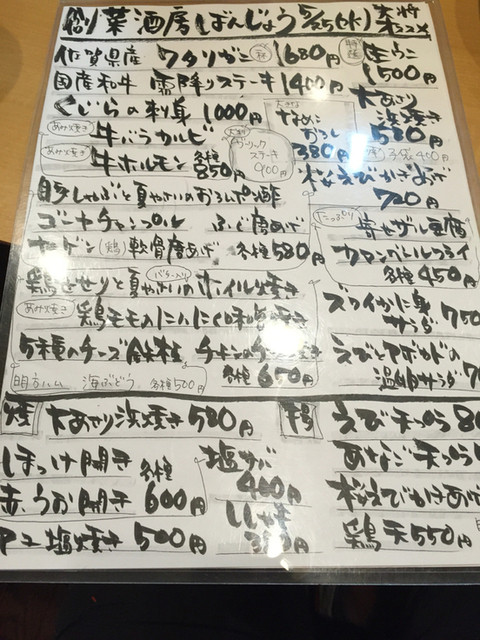 創菜酒房ぼんじょう 5/25(水)
佐賀県産 ワタリガニ 1杯 1680円
国産和牛 霜降りステーキ 1400円
くじらの刺身 1000円
あみ焼き 牛バラカルビ
あみ焼き 牛ホルモン 各種 850円
ガーリックステーキ 900円
豚しゃぶと夏やさいのおろしポン酢
ゴーヤチャンプル ふぐ唐あげ
ヤゲン(鶏)軟骨唐あげ 各種 580円
鶏せせりと夏やさいの バター入り ホイル焼き
あみ焼き 鶏モモのにんにく味噌焼き
5種のチーズ チキンのチーズ焼き
各種 650円
明方ハム 海ぶどう 各種500円
特選 生うに
1500円
大あさり
浜焼き
580円
なめこ
おろし
380円
子袋 450円
桜えびかきあげ
720円
寄せザル豆腐
カマンベールフライ
各種 450円
ズワイかに身
サラダ 750
えびとアボカドの
温卵サラダ
焼 大あさり浜焼き 580円
ほっけ開き 各種
赤うお開き 600円
アユ塩焼き 500円
塩サバ
400円
ししゃも
350円
揚 えび天ぷら
あなご天ぷら
桜えびかきあげ
鶏天 550円